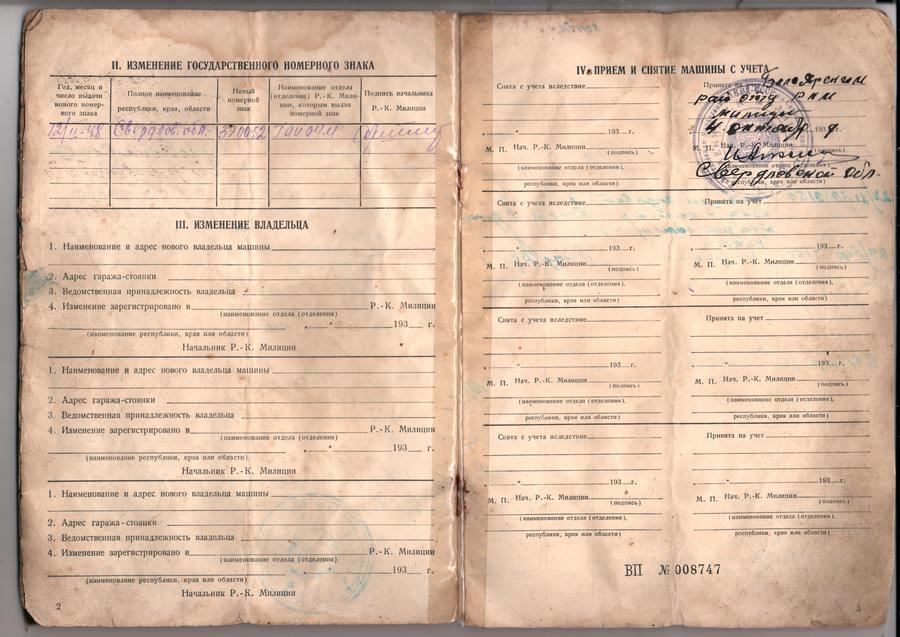 II. ИЗМЕНЕНИЕ ГОСУДАРСТВЕННОГО НОМЕРНОГО ЗНАКА
Год, месяц и число выдачи нового номерного знака
Полное наименование республики, края, области
Новый номерной знак
Наименование отдела (отделения) Р.-К. Милиции, которым выдан номерной знак
Подпись начальника Р.-К. Милиции
Свердлов. обл.
III. ИЗМЕНЕНИЕ ВЛАДЕЛЬЦА
1. Наименование и адрес нового владельца машины
2. Адрес гаража-стоянки
3. Ведомственная принадлежность владельца
4. Изменение зарегистрировано в Р.-К. Милиции
(наименование отдела (отделения)
" " 193 г.
(наименование республики, края или области)
Начальник Р.-К. Милиции
1. Наименование и адрес нового владельца машины
2. Адрес гаража-стоянки
3. Ведомственная принадлежность владельца
4. Изменение зарегистрировано в Р.-К. Милиции
(наименование отдела (отделения)
" " 193 г.
(наименование республики, края или области)
Начальник Р.-К. Милиции
1. Наименование и адрес нового владельца машины
2. Адрес гаража-стоянки
3. Ведомственная принадлежность владельца
4. Изменение зарегистрировано в Р.-К. Милиции
(наименование отдела (отделения)
" " 193 г.
(наименование республики, края или области)
Начальник Р.-К. Милиции
2
IV. ПРИЕМ И СНЯТИЕ МАШИНЫ С УЧЕТА
Снята с учета вследствие
" " 193 г.
М. П. Нач. Р.-К. Милиции
(подпись)
(наименование отдела (отделения),
республики, края или области)
Принята
РКМ
милиции
4 октябр 193 г
Свердловской обл.
Снята с учета вследствие
" " 193 г.
М. П. Нач. Р.-К. Милиции
(подпись)
(наименование отдела (отделения),
республики, края или области)
Принята на учет
" " 193 г.
М. П. Нач. Р.-К. Милиции
(подпись)
(наименование отдела (отделения),
республики, края или области)
Снята с учета вследствие
" " 193 г.
М. П. Нач. Р.-К. Милиции
(подпись)
(наименование отдела (отделения),
республики, края или области)
Принята на учет
" " 193 г.
М. П. Нач. Р.-К. Милиции
(подпись)
(наименование отдела (отделения),
республики, края или области)
Снята с учета вследствие
" " 193 г.
М. П. Нач. Р.-К. Милиции
(подпись)
(наименование отдела (отделения),
республики, края или области)
Принята на учет
" " 193 г.
М. П. Нач. Р.-К. Милиции
(подпись)
(наименование отдела (отделения),
республики, края или области)
ВП № 008747
3